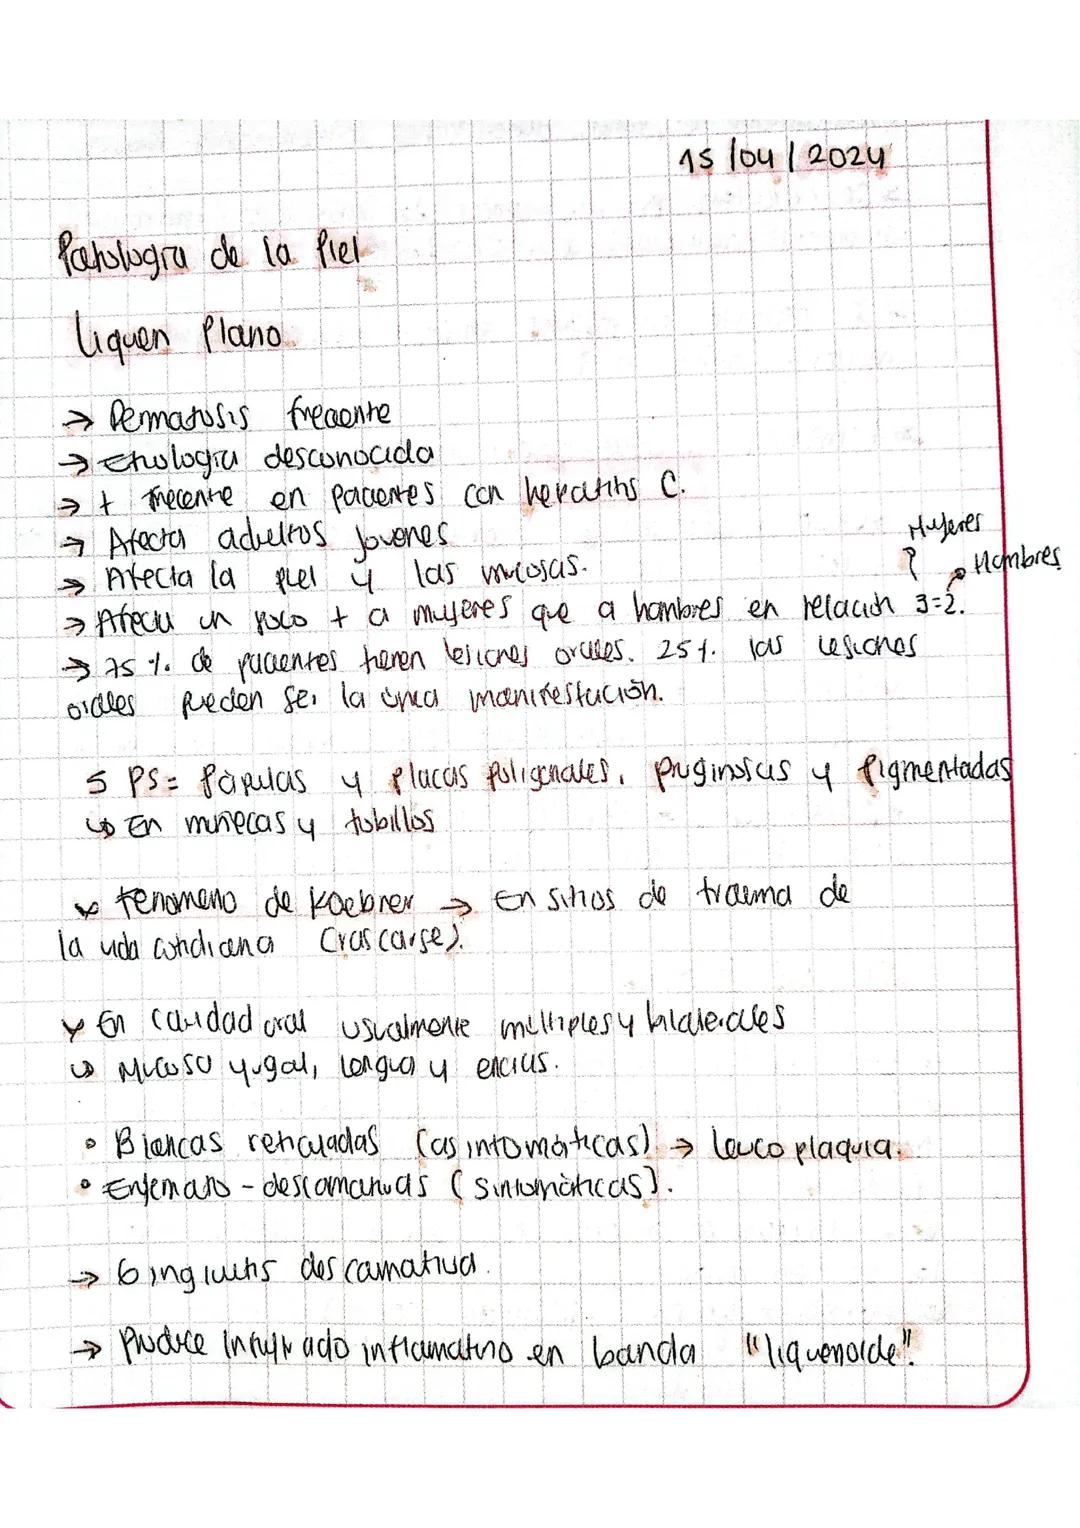 15/04/2024
Patología de la Piel
Liquen Plano.
→ Dermatosis frecuente
→ Etiología desconocida
→ + frecuente en pacientes con hepatitis C.
→ Afecta adultos jovenes
→ Afecta la piel y las mucosas.
Mujeres
Hombres
→ Afecta un poco + a mujeres que a hombres en relación 3=2.
→ 75 %. de pacientes tienen lesiones orales. 25%. las lesiones
orales pueden ser la única manifestación.
5 PS = Pápulas y placas poligonales, pruginosas y pigmentadas
↳ En muñecas y tobillos
* Fenomeno de Koebner → En sitios de trauma de
la vida cotidiana (rascarse).
* En cavidad oral usualmente multiples y bilaterales
↳ Mucosa yugal, lengua y encias.
• Blancas reticuladas (asintomáticas) → leucoplaquia.
• Eritemato - descamativas (sintomáticas).
→ Gingivitis descamativa.
→ Produce infiltrado inflamatorio en banda "liquenoide".